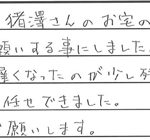 猪澤さんのお宅の
願いする事にしました
遅くなったのが少し残
任せできました。
お願いします。